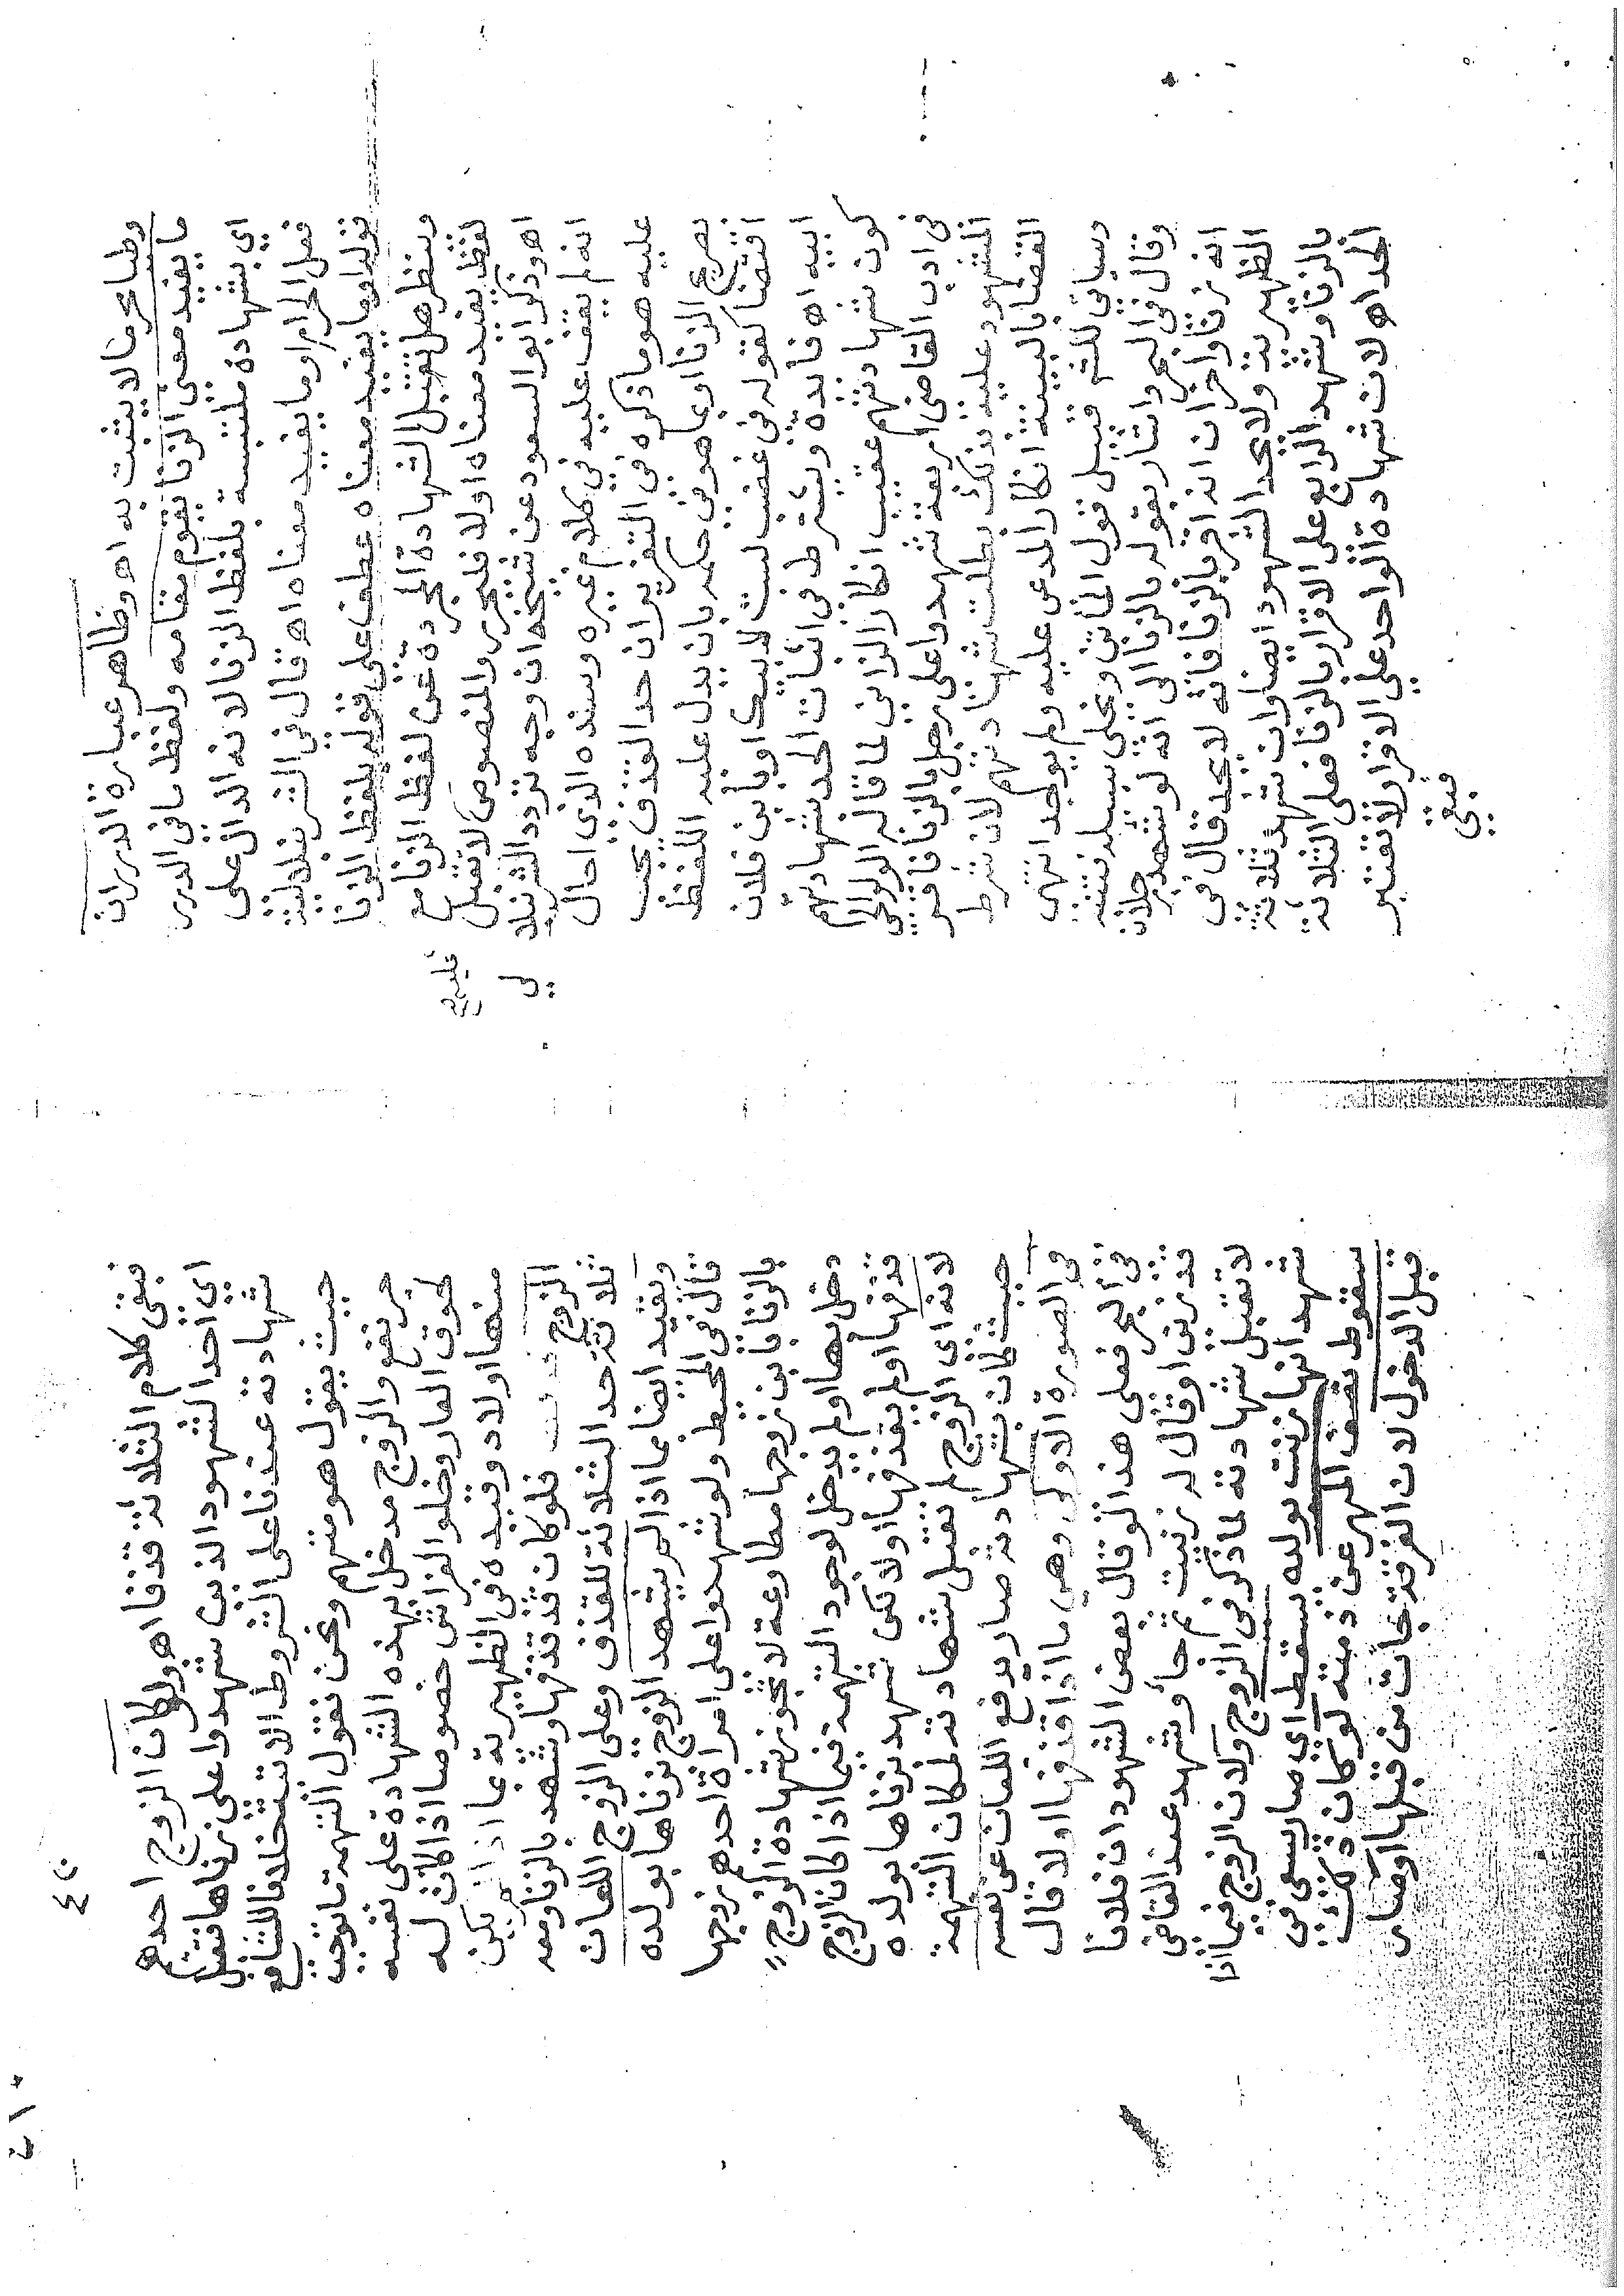 وطئا محرما لا يثبت به اه وظاهر عبارة الدرر ان
ما يفيد معنى الزنا يقوم مقامه ولفظ ما فى الدرر
اي بشهادة ملتبسة بلفظ الزنا لانه الدال على
فعل الحرام او ما يفيد معناه اه قال في الشرنبلالية
قوله او ما يفيد معناه عطف على قوله بلفظ الزنا
وينظر هل تقبل الشهادة المجردة عن لفظ الزنا مع
لفظ يفيد معناه اولا فليحرر والمنصوص لا تقبل
اه وذكر ابو السعود عن شيخه ان وجه تردد الشرنبلا
لي
انه لم يقف عليه في كلام غيره وسنده الذي احال
عليه هو ما ذكره في التقرير ان حد القذف يجب
بصريح الزنا او بما هو في حكمه بان يدل عليه اللفظ
اقتضا كقوله في غضب لست لابيك او يا ابن فلان
ابيه اه فايدة ويشترط في اثبات الحد بشهادتهم
كون شهادتهم عقيب انكار الزاني لما قاله الولوالجي
فى ادب القاضى اربعة شهدوا على رجل بالزنا فاقر
المشهود عليه بذلك بطلت شهادتهم لان شرط
القضا بالبينة انكار المدعى عليه ولم يوجد انتهى
وسيأتي للشم قبيل قول الماتن وعلى سارق تثبته
وقال في البحر واشار بقوله بالزنا الى انه لو شهد رجلان
انه زنا واخران انه اقر بالزنا فانه لا يحد قال في
الظهيرية ولا يحد الشهود ايضا وان شهد ثلاثة
بالزنا وشهد الرابع على الاقرار بالزنا فعلى الثلاثة
الحد اه لان شهادة الواحد على الاقرار لا تعتبر
فبقي
فبقى كلام الثلاثة قذفا اه ولو كان الزوج احدهم
اي احد الشهود الذين شهدوا على زناها تقبل
شهادته عندنا على الشروط الاتية خلافا للشافعي
حيث يقول هو متهم ونحن نقول التهمة ما توجب
جر نفع والزوج مدخل بهذه الشهادة على نفسه
لحوق العار وخلو الفراش خصوصا اذا كان له
منها اولاد وقيده في الظهيرية بما اذا لم يكن
الزوج قذف فلو كان قد قذفها وشهد بالزنا ومعه
ثلاثة حد الثلاثة للقذف وعلى الزوج اللعان
ويقيد ايضا بما اذا لم يشهد الزوج بزناها بولده
قال في المحيط ولو شهدوا على امراة احدهم زوجها
بالزنا بابن زوجها مطاوعة لا تجوز شهادة الزوج
دخل بها او لم يدخل لوجود التهمة فيما اذا كان الزوج
قذفها او لم يقذفها اولا لكن شهد بزناها بولده
لانه اي الزوج لم تقبل شهادته لمكان التهمة
حيث كان بشهادته صار يدفع اللعان عن نفسه
في الصورة الاولى وهي ما اذا قذفها اولا قال
في البحر فعلى هذا لو قال بعض الشهود ان فلانا
قد زنى او قال له زنيت ثم جاء وشهد عند القاضي
لا تقبل شهادته لما ذكر في الزوج ولان الزوج فيما اذا
شهد انها زنت بولده سقط اي صار يسعى في
سقوط نصف المهر عن ذمته لو كان ذلك
قبل الدخول لان الفرقة جات من قبلها او صار